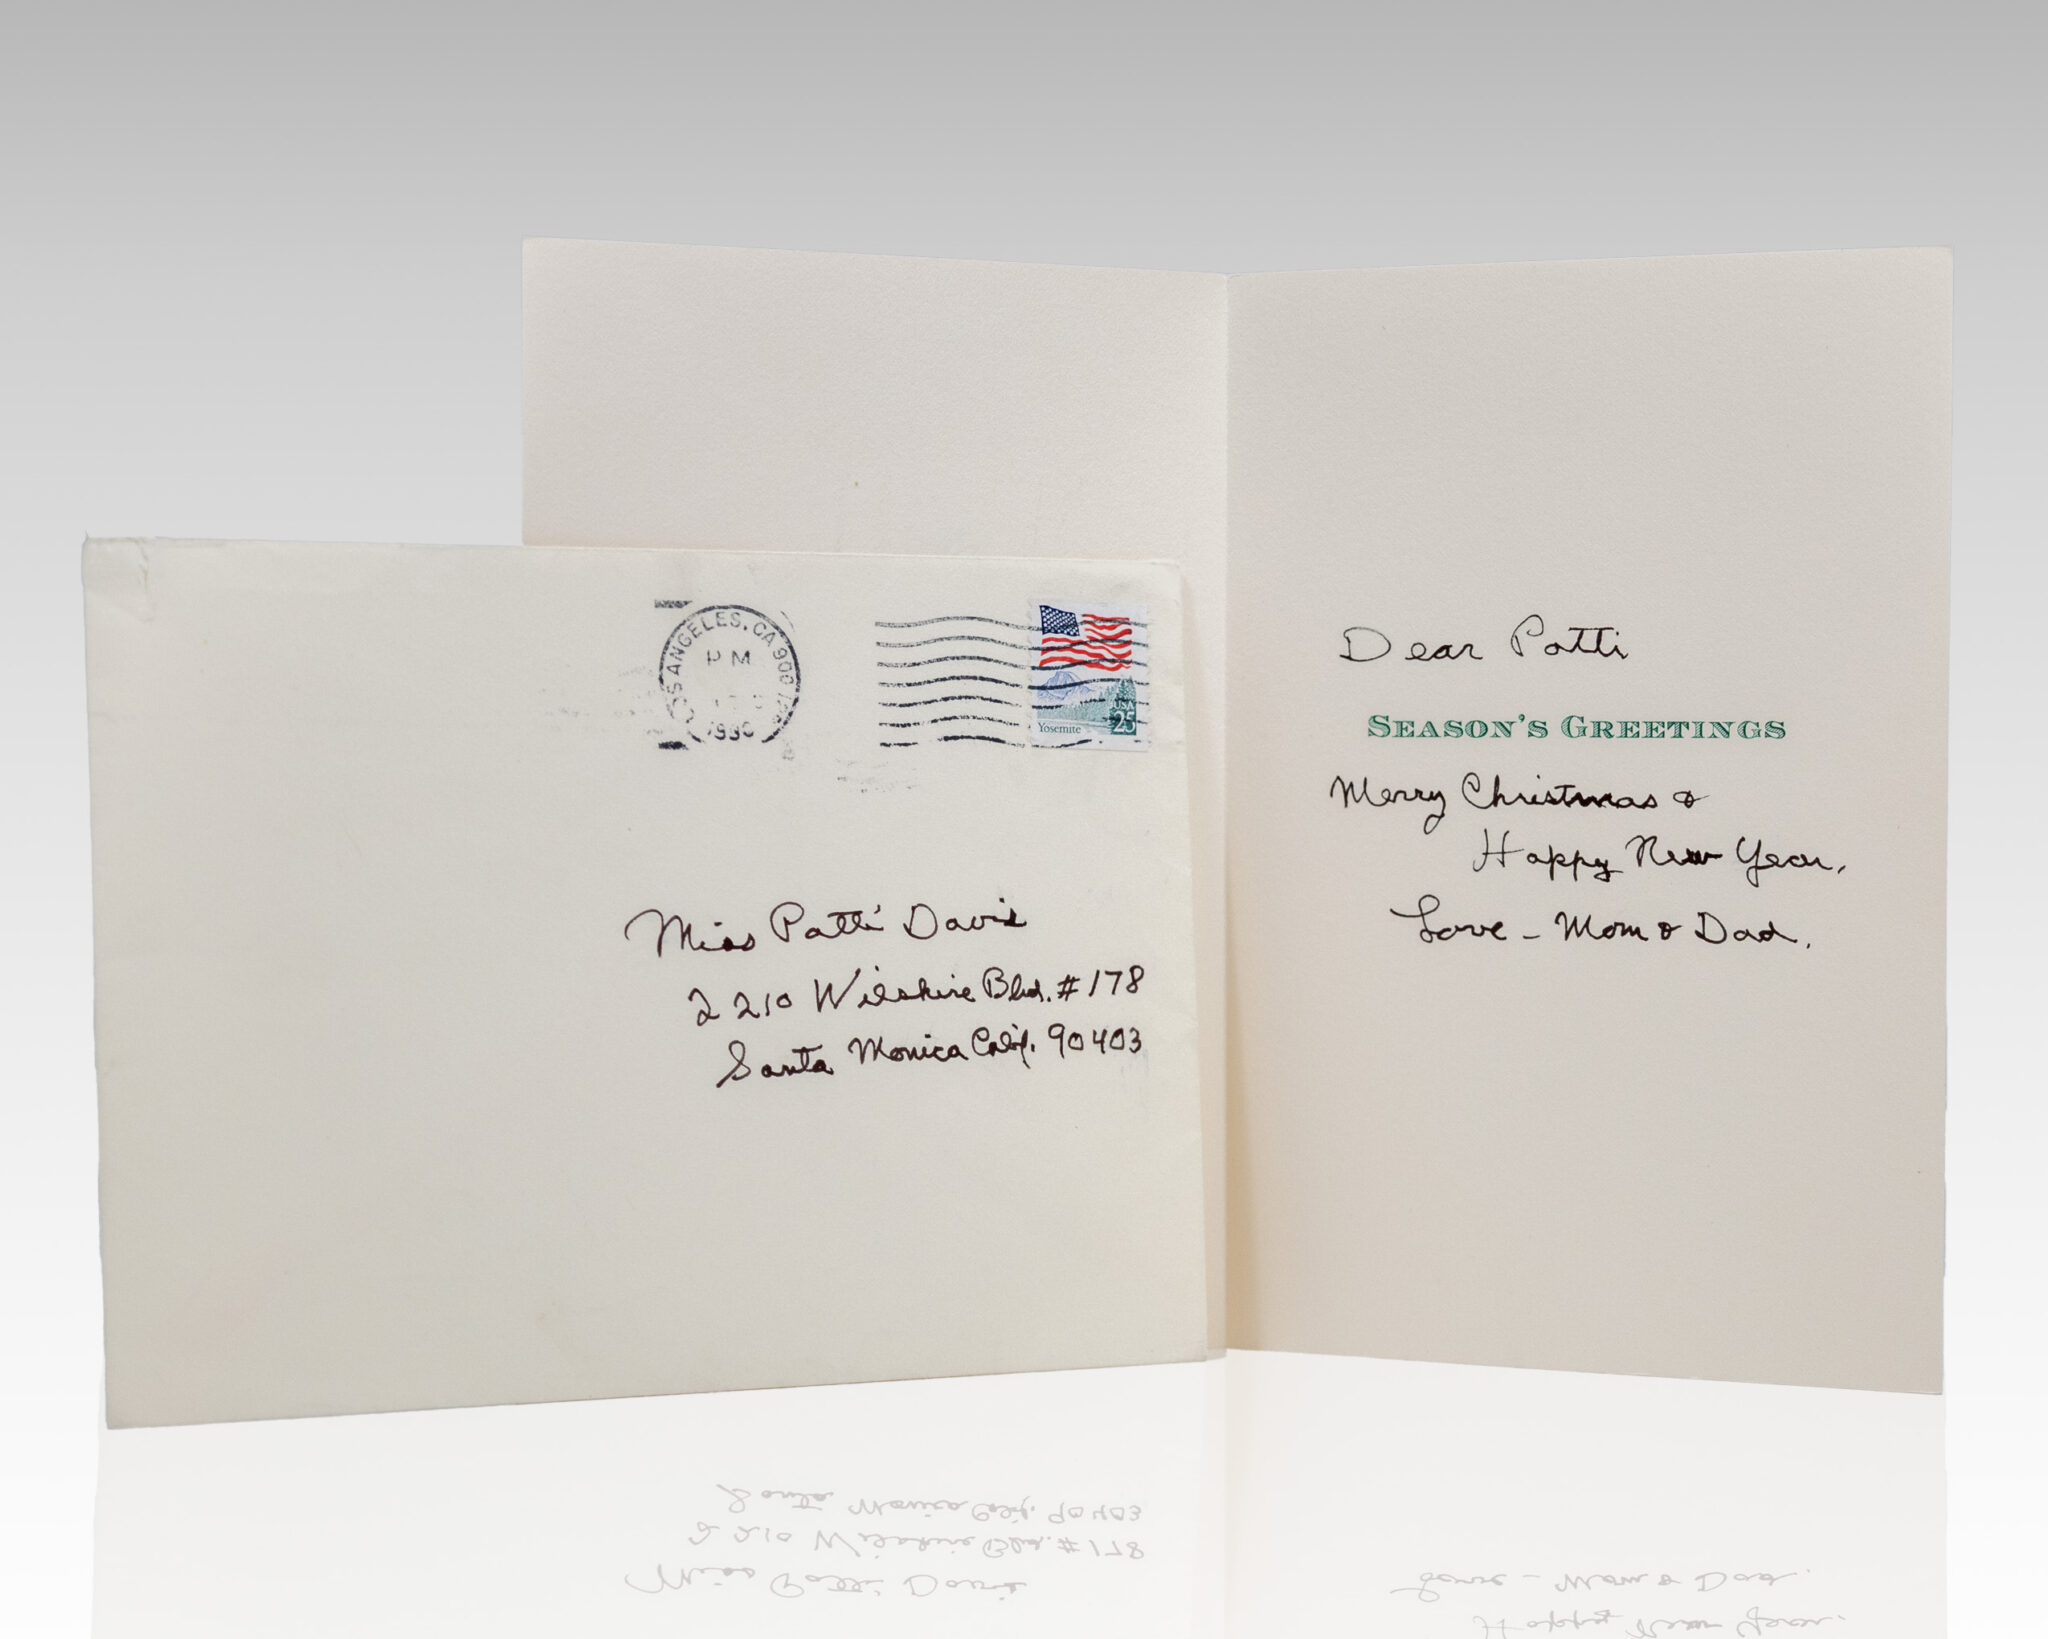 LOS ANGELES, CA 900
PM
USA
25
Yosemite
Miss Patti Davis
2210 Wilshire Blvd. #178
Santa Monica Calif. 90403
Dear Patti
SEASON'S GREETINGS
Merry Christmas &
Happy New Year.
Love – Mom & Dad.